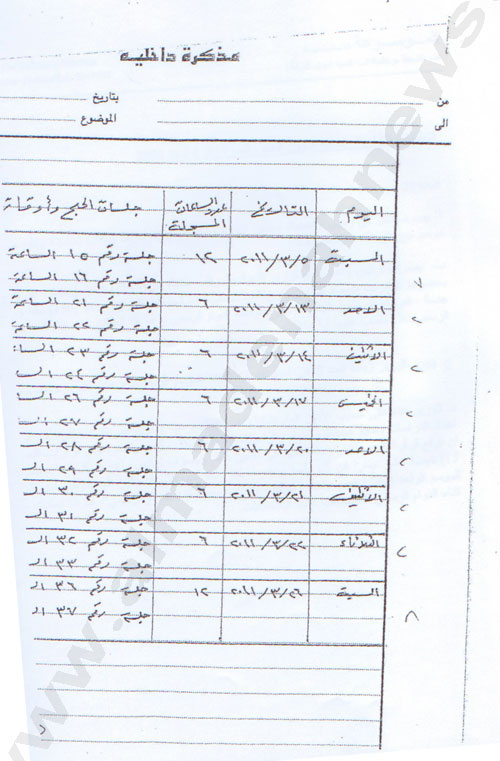 مذكرة داخليه
من بتاريخ
الى الموضوع
اليوم التاريخ عدد الساعات المسجلة جلسات الحجج وأوقاتة
السبت ٢٠١١/٣/٥ ١٢ جلسة رقم ١٥ الساعة
٧ جلسة رقم ١٦ الساعة
الاحد ٢٠١١/٣/١٣ ٦ جلسة رقم ٢١ الساعة
٢ جلسة رقم ٢٢ الساعة
الاثنين ٢٠١١/٣/١٤ ٦ جلسة رقم ٢٣ السا
٢ جلسة رقم ٢٤ السا
الخميس ٢٠١١/٣/١٧ ٦ جلسة رقم ٢٦ السا
٢ جلسة رقم ٢٧ السا
الاحد ٢٠١١/٣/٢٠ ٦ جلسة رقم ٢٨ الس
٢ جلسة رقم ٢٩ الس
الاثنين ٢٠١١/٣/٢١ ٦ جلسة رقم ٣٠ الس
٢ جلسة رقم ٣١ الس
الثلاثاء ٢٠١١/٣/٢٢ ٦ جلسة رقم ٣٢ الس
٢ جلسة رقم ٣٣ الس
السبت ٢٠١١/٣/٢٦ ١٢ جلسة رقم ٣٦ الس
٨ جلسة رقم ٣٧ الس
www.almadenahnews